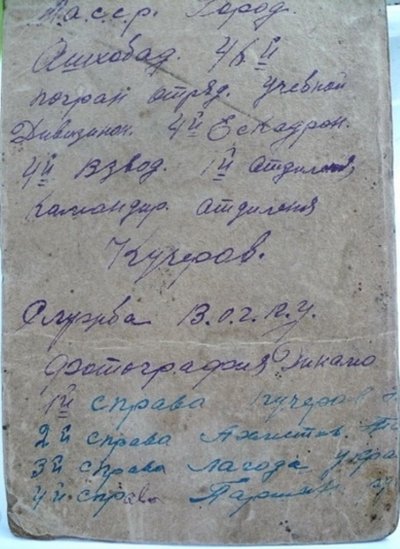 Т.а.с.с.р. Город.
Ашхобад. 46й
погран отряд. Учебной
Дивизион. 4й Ескадрон.
4й Взвод. 1й отдиления
Камандир. отдиления
Кучеров.
Служба В.О.Г.П.У.
Фотография Динамо
1й справа Кучеров
2й справа
3й справа Лагода
4й справа